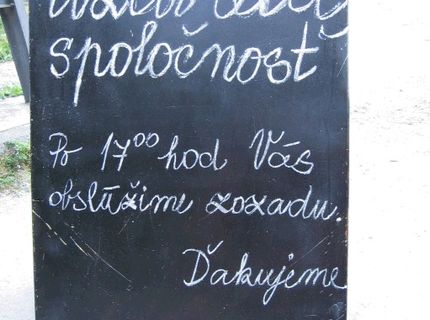 spoločnosť
Po 17⁰⁰ hod Vás
obslúžime zozadu.
Ďakujeme